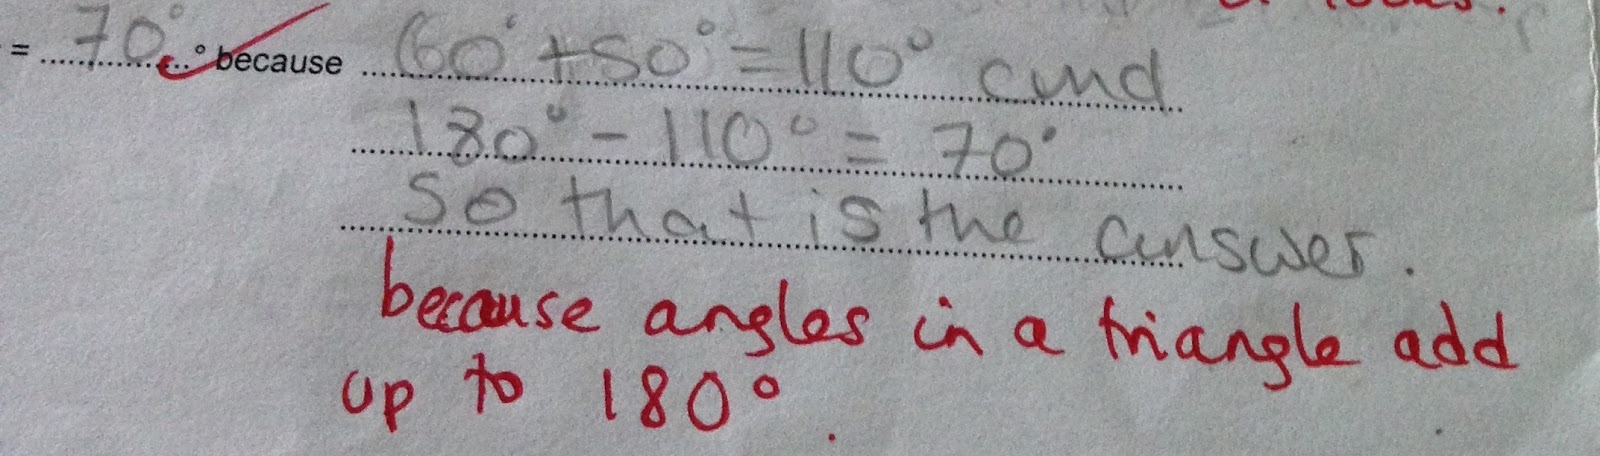 = 70° ° because 60° + 50° = 110° and
180° - 110° = 70°
So that is the answer.
because angles in a triangle add
up to 180°.